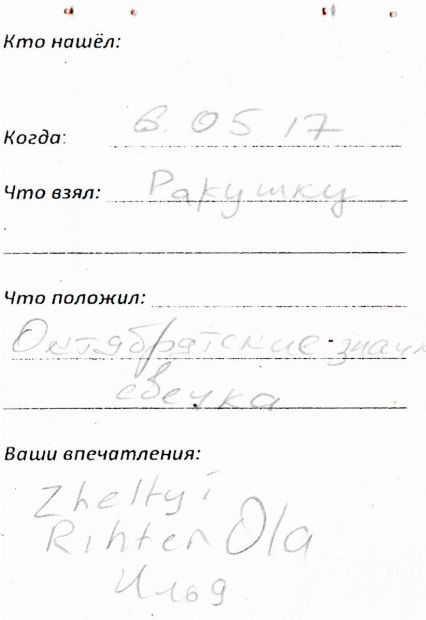 Кто нашёл:
Когда: 6. 05 17
Что взял: Ракушку
Что положил:
Октябрятские значк
свечка
Ваши впечатления:
Zheltyi
Rihter Ola
Илья